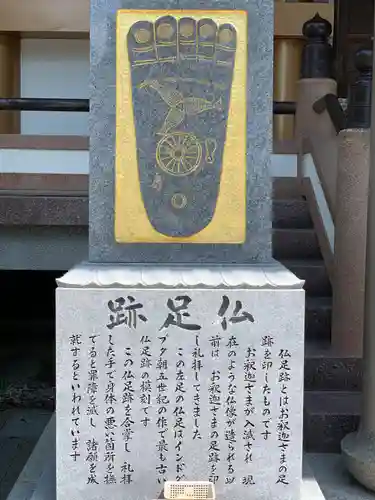 仏足跡
仏足跡とはお釈迦さまの足
跡を印したものです
お釈迦さまが入滅され 現
在のような仏像が造られる以
前は お釈迦さまの足跡を印
し礼拝してきました
この左足の仏足はインドグ
プタ朝五世紀の作で最も古い
仏足跡の模刻です
この仏足跡を合掌し 礼拝
した手で身体の悪い箇所を撫
でると罪障を滅し 諸願を成
就するといわれています